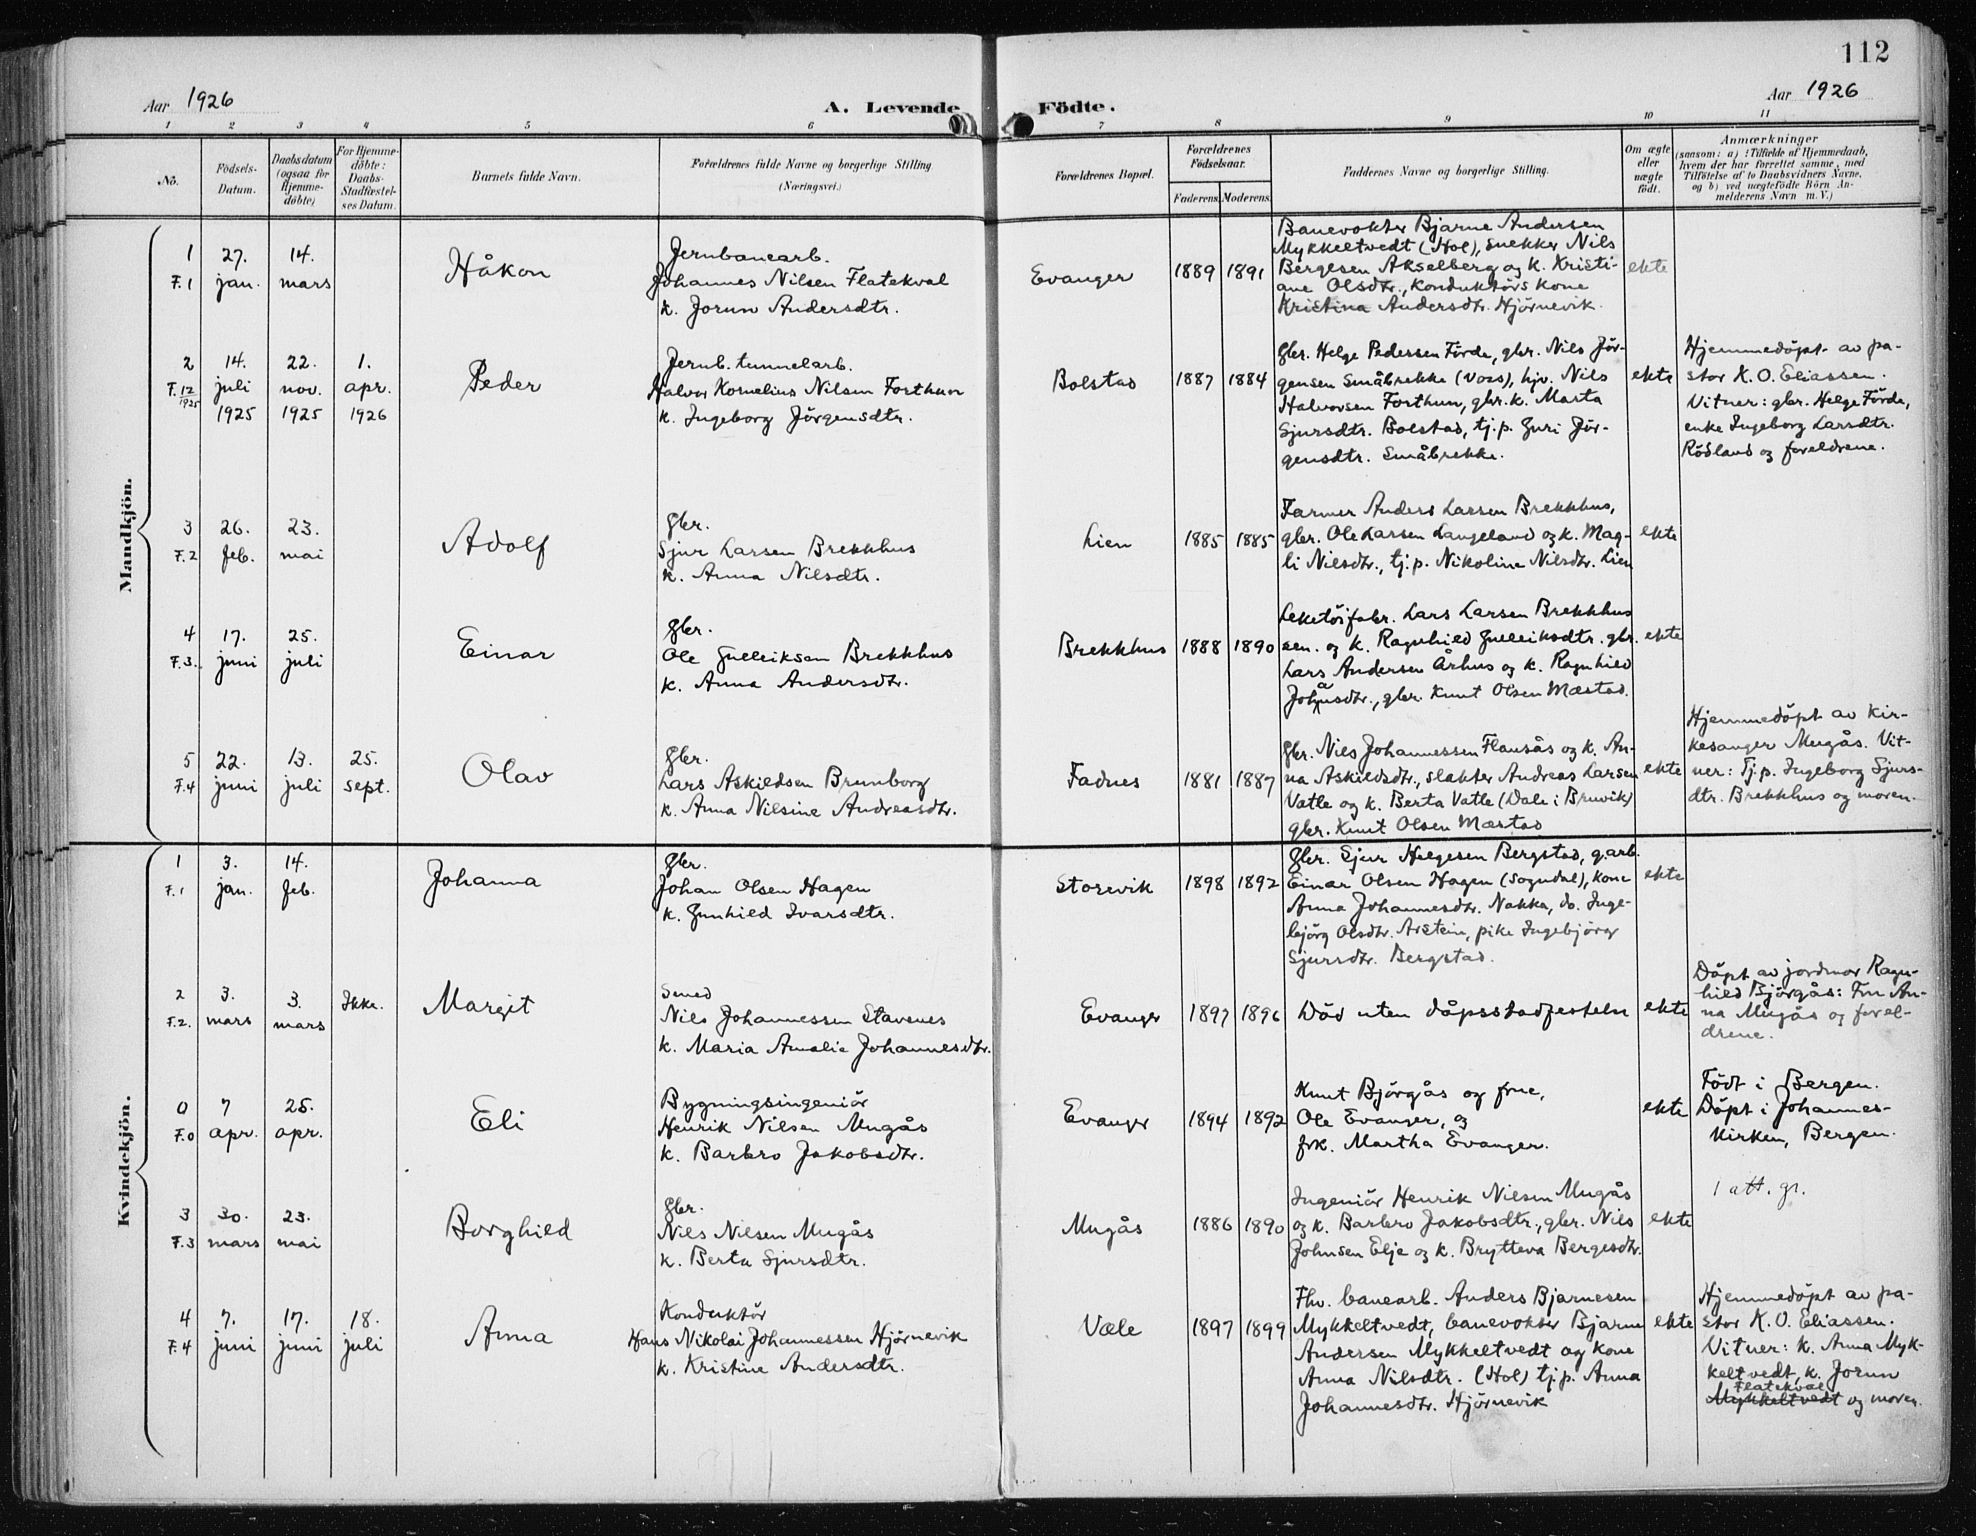 112
Aar 1926
A. Levende Födte.
Aar 1926
1 2 3 4 5 6 7 8 9 10 11
No.
Födsels-
Datum.
Daabsdatum
(ogsaa for
Hjemme-
döbte)
For Hjemme-
döbte:
Daabs-
Stadfæstel-
ses Datum.
Barnets fulde Navn.
Forældrenes fulde Navne og borgerlige Stilling
(Næringsvei.)
Forældrenes Bopæl.
Forældrenes
Födselsaar.
Faderens. Moderens.
Faddernes Navne og borgerlige Stilling.
Om ægte
eller
uægte
födt.
Anmærkninger
(saasom: a) i Tilfælde af Hjemmedaab,
hvem der har forrettet samme, med
Tilföielse af to Daabsvidners Navne,
og b) ved uægtefödte Börn An-
melderens Navn m. V.)
Mandkjön.
1
F.1
27.
jan.
14.
mars
Håkon
Jernbanearb.
Johannes Nilsen Flatekval
k. Jorun Andersdtr.
Evanger
1889 1891
Banevokter Bjarne Andersen
Mykkeltvedt (Hol), snekker Nils
Bergesen Akselberg og k. Kristi-
ane Olsdtr., konduktørs kone
Kristina Andersdtr. Hjörnevik.
ekte
2
F.12
1925
14.
juli
1925
22.
nov.
1925
1.
apr.
1926
Peder
Jernb. tunnelarb.
Halvor Kornelius Nilsen Forthun
k. Ingeborg Jörgensdtr.
Bolstad
1887 1884
gbr. Helge Pedersen Förde, gbr. Nils Jör-
gensen Småbrekke (Voss), hjv. Nils
Halvorsen Forthun, gbr.k. Marta
Sjursdtr. Bolstad, tj.p. Guri Jör-
gensdtr. Småbrekke.
ekte
Hjemmedöpt av pa-
stor K. O. Eliassen.
Vitner: gbr. Helge Förde,
enke Ingeborg Larsdtr.
Rödland og foreldrene.
3
F.2
26.
feb.
23.
mai
Adolf
Gbr.
Sjur Larsen Brekkhus
k. Anna Nilsdtr.
Lien
1885 1885
Farmer Anders Larsen Brekkhus,
gbr. Ole Larsen Langeland og k. Mag-
li Nilsdtr., tj.p. Nikoline Nilsdtr. Lien
ekte
4
F.3.
17.
juni
25.
juli
Einar
Gbr.
Ole Gulleiksen Brekkhus
k. Anna Andersdtr.
Brekkhus
1888 1890
Leketöifabr. Lars Larsen Brekkhus
sen. og k. Ragnhild Gulleiksdtr. gbr.
Lars Andersen Århus og k. Ragnhild
Johansdtr., gbr. Knut Olsen Mæstad.
ekte
5
F.4
22.
juni
13.
juli
25.
sept.
Olav
Gbr.
Lars Askildsen Brunborg
k. Anna Nilsine Andreasdtr.
Fadnes
1881 1887
Gbr. Nils Johannessen Flansås og k. An-
na Askildsdtr., slakter Andreas Larsen
Vatle og k. Berta Vatle (Dale i Bruvik)
gbr. Knut Olsen Mæstad
ekte
Hjemmedöpt av Kir-
kesanger Mugås. Vit-
ner: Tj.p. Ingeborg Sjurs-
dtr. Brekkhus og moren.
Kvindekjön.
1
F.1
3.
jan.
14.
feb.
Johanna
Gbr.
Johan Olsen Hagen
k. Gunhild Ivarsdtr.
Storevik
1898 1892
Gbr. Sjur Helgesen Bergstad, g.arb.
Einar Olsen Hagen (Sogndal), kone
Anna Johannesdtr. Nakka, do. Inge-
björg Olsdtr. Arstein, pike Ingebjörg
Sjursdtr. Bergstad.
ekte
2
F.2.
3.
mars
3.
mars
Ikke.
Margit
Smed
Nils Johannessen Stavenes
k. Maria Amalie Johannesdtr.
Evanger
1897 1896
Död uten dåpsstadfestelse
ekte
Döpt av jordmor Ragn-
hild Björgås: Fru An-
na Mugås og forel-
drene.
0
F.0
7
apr.
25.
apr.
Eli
Bygningsingeniör
Henrik Nilsen Mugås
k. Barbro Jakobsdtr.
Evanger
1894 1892
Knut Björgås og frue,
Ole Evanger, og
frk. Martha Evanger.
ekte
Född i Bergen.
Döpt i Johannes-
kirken, Bergen.
3
F.3
30.
mars
23.
mai
Borghild
Gbr.
Nils Nilsen Mugås
k. Berta Sjursdtr.
Mugås
1886 1890
Ingeniör Henrik Nilsen Mugås
og k. Barbro Jakobsdtr., gbr. Nils
Johnsen Elje og k. Brytteva Bergesdtr.
ekte
1 att. gr.
4
F.4
7.
juni
17.
juni
18.
juli
Anna
Konduktör
Hans Nikolai Johannessen Hjörnevik
k. Kristine Andersdtr.
Væle
1897 1899
Fhv. banearb. Anders Bjarnesen
Mykkeltvedt, banevokter Bjarne
Andersen Mykkeltvedt og kone
Anna Nilsdtr. (Hol) tj.p. Anna
Johannesdtr. Hjörnevik
ekte
Hjemmedöpt av pa-
stor K. O. Eliassen.
Vitner: k. Anna Myk-
keltvedt, k. Jorun
Flatekval
Mykkeltvedt og moren.